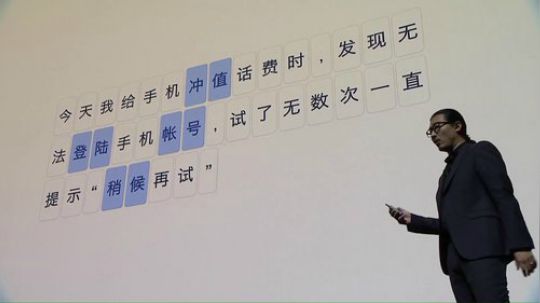 今天我给手机冲值话费时，发现无
法登陆手机帐号，试了无数次一直
提示“稍候再试”